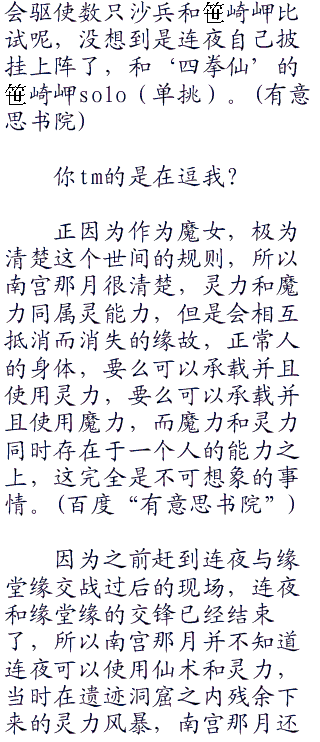 会驱使数只沙兵和笹崎岬比
试呢，没想到是连夜自己披
挂上阵了，和‘四拳仙’的
笹崎岬solo（单挑）。(有意
思书院)
你tm的是在逗我？
正因为作为魔女，极为
清楚这个世间的规则，所以
南宫那月很清楚，灵力和魔
力同属灵能力，但是会相互
抵消而消失的缘故，正常人
的身体，要么可以承载并且
使用灵力，要么可以承载并
且使用魔力，而魔力和灵力
同时存在于一个人的能力之
上，这完全是不可想象的事
情。(百度“有意思书院”)
因为之前赶到连夜与缘
堂缘交战过后的现场，连夜
和缘堂缘的交锋已经结束
了，所以南宫那月并不知道
连夜可以使用仙术和灵力，
当时在遗迹洞窟之内残余下
来的灵力风暴，南宫那月还